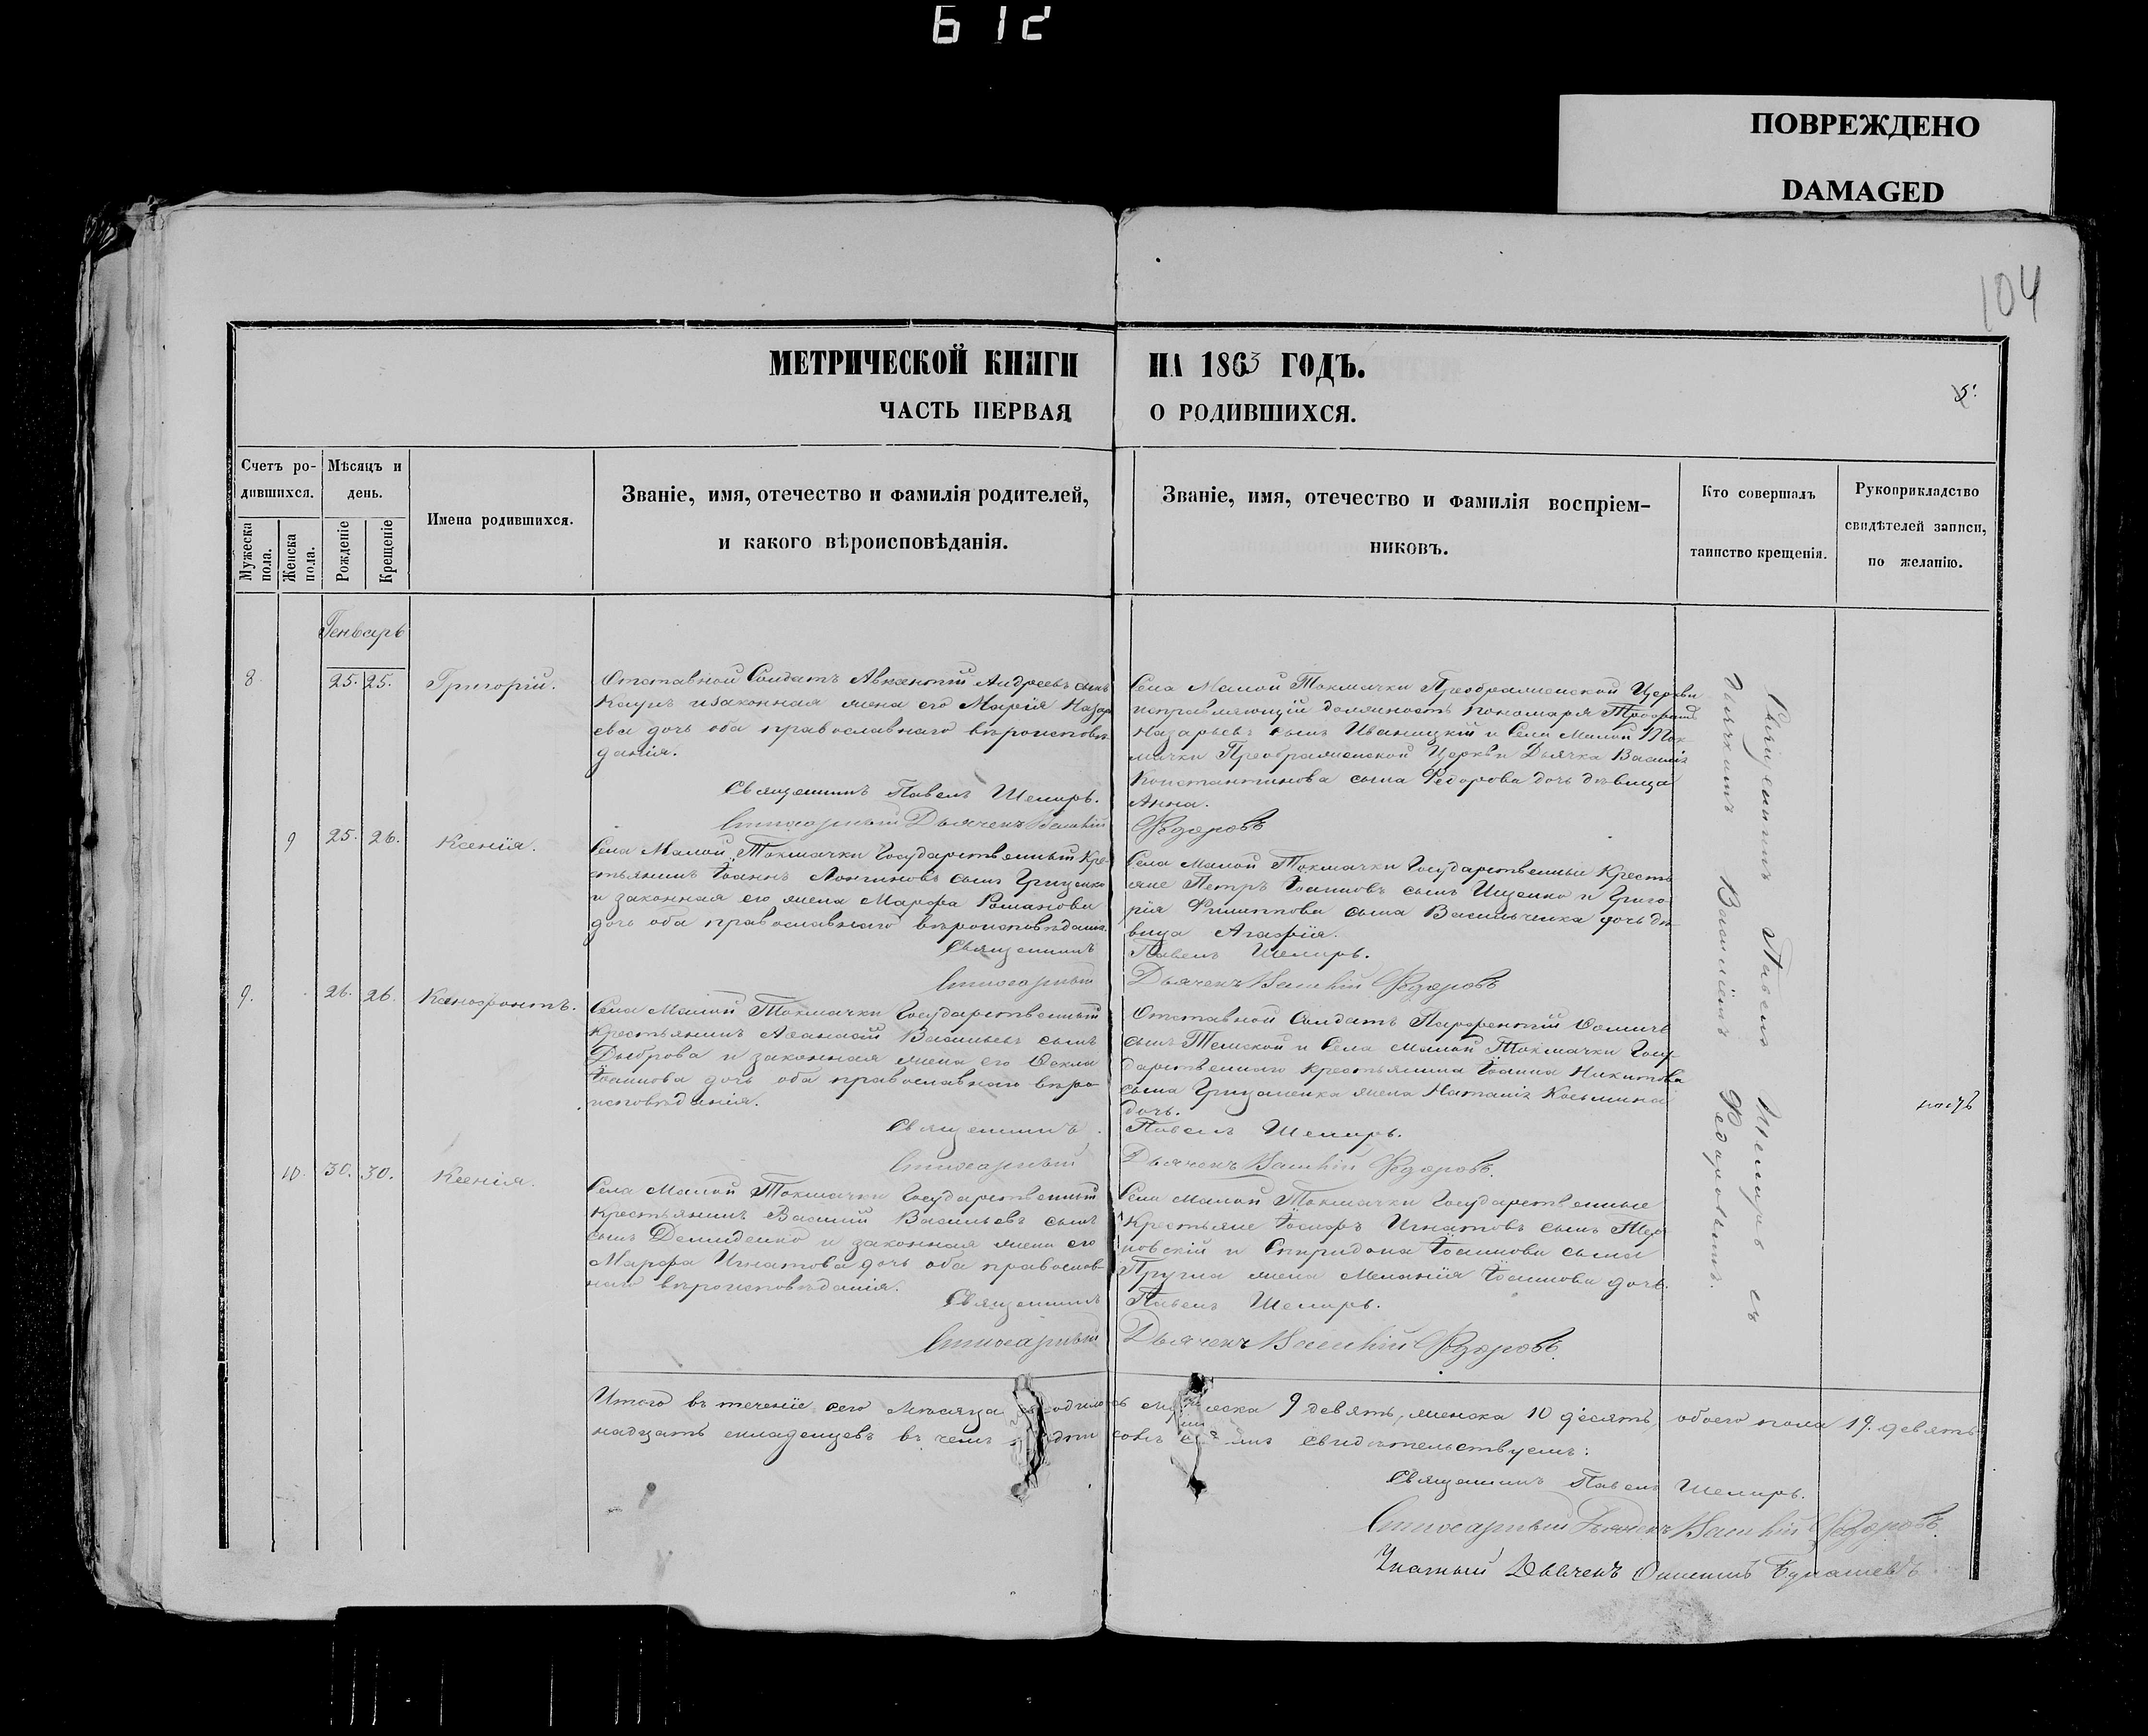 612
ПОВРЕЖДЕНО
DAMAGED
104
МЕТРИЧЕСКОЙ КНИГИ НА 1863 ГОДЪ.
5.
ЧАСТЬ ПЕРВАЯ О РОДИВШИХСЯ.
Счетъ родившихся.
Мужеска пола.
Женска пола.
Мѣсяцъ и день.
Рожденіе
Крещеніе
Имена родившихся.
Званіе, имя, отечество и фамилія родителей,
и какого вѣроисповѣданія.
Званіе, имя, отечество и фамилія воспріем-
никовъ.
Кто совершалъ
таинство крещенія.
Рукоприкладство
свидѣтелей записи,
по желанію.
Генварь
8. 25. 25. Григорій.
Отставной Солдатъ Авксентій Андреевъ сынъ
Кауцъ и законная жена его Марія Назарь
ева дочь оба православнаго вѣроисповѣ-
данія.
Священникъ Павелъ Шемиръ.
Дьячекъ Василій
Села Малой Токмачки Преображенской Церкви
исправляющій должность пономаря
Назарьевъ сынъ Иваницкій и Села Малой Ток
мачки Преображенской Церкви Дьячка Василія
Константинова сына Федорова дочь дѣвица
Анна.
Федоровъ
9 25. 26. Ксенія.
Села Малой Токмачки Государственный Кре-
стьянинъ Іоаннъ Логгиновъ сынъ Гриценко
и законная его жена Марфа Романова
дочь оба православнаго вѣроисповѣданія.
Священникъ
Села Малой Токмачки Государственные Кресть
яне Петръ Іоанновъ сынъ Ищенко и Григо
рія Филиппова сына Васильченка дочь дѣ
вица Агафія.
Павелъ Шемиръ.
Дьячекъ Василій Федоровъ
9. 26. 26. Ксенофонтъ.
Села Малой Токмачки Государственный
Крестьянинъ Аѳанасій Васильевъ сынъ
Дыброва и законная жена его Ѳекла
Іоаннова дочь оба православнаго вѣро-
исповѣданія.
Священникъ
Отставной Солдатъ Парфентій Ѳомичъ
сынъ Темской и Села Малой Токмачки Госу-
дарственнаго крестьянина Іоанна Никитова
сына Грицаненка жена Наталія Косьмина
дочь.
Павелъ Шемиръ.
Дьячекъ Василій Федоровъ.
10. 30. 30. Ксенія.
Села Малой Токмачки Государственный
крестьянинъ Василій Васильевъ сынъ
сынъ Демиденко и законная жена его
Марфа Игнатова дочь оба православ-
наго вѣроисповѣданія.
Священникъ
Села Малой Токмачки Государственные
Крестьяне Іосифъ Игнатовъ сынъ
новскій и Спиридона Іоаннова сына
жена Меланія Іоаннова дочь.
Павелъ Шемиръ.
Дьячекъ Василій Федоровъ.
Священникъ Павелъ Шемиръ съ
Дьячкомъ Василіемъ Федоровымъ.
Итого въ теченіе сего мѣсяца родилось мужеска 9 девять, женска 10 десять, обоего пола 19. девять
надцать младенцевъ въ чемъ свидѣтельствуемъ:
Священникъ Павелъ Шемиръ.
Дьячекъ Василій Федоровъ.
Дьячекъ